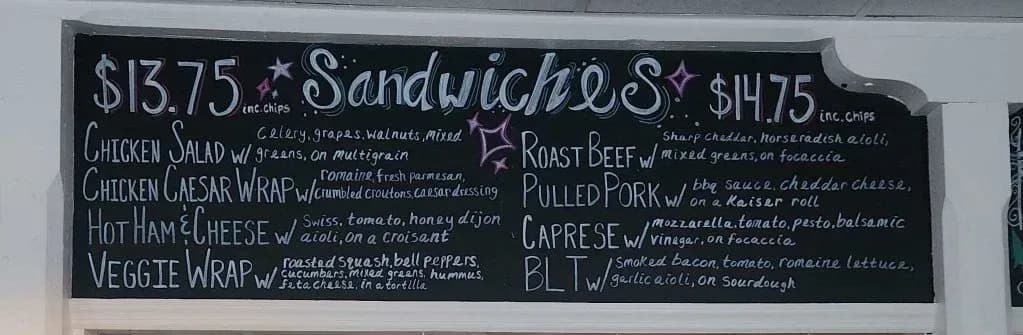 $13.75 inc. chips
Sandwiches
$14.75 inc. chips
CHICKEN SALAD w/ Celery, grapes, walnuts, mixed
greens, on multigrain
CHICKEN CAESAR WRAP w/ romaine, fresh parmesan,
crumbled croutons, caesar dressing
HOT HAM & CHEESE w/ Swiss, tomato, honey dijon
aioli, on a croisant
VEGGIE WRAP w/ roasted squash, bell peppers,
cucumbers, mixed greens, hummus,
feta cheese, in a tortilla
ROAST BEEF w/ Sharp cheddar, horseradish aioli,
mixed greens, on focaccia
PULLED PORK w/ bbq sauce, cheddar cheese,
on a Kaiser roll
CAPRESE w/ mozzarella, tomato, pesto, balsamic
vinegar, on focaccia
BLT w/ Smoked bacon, tomato, romaine lettuce,
garlic aioli, on sourdough